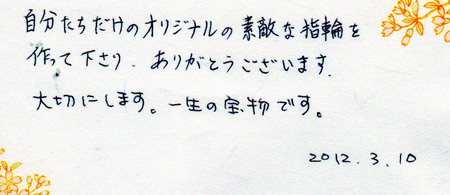 自分たちだけのオリジナルの素敵な指輪を
作って下さり、ありがとうございます。
大切にします。一生の宝物です。
2012.3.10